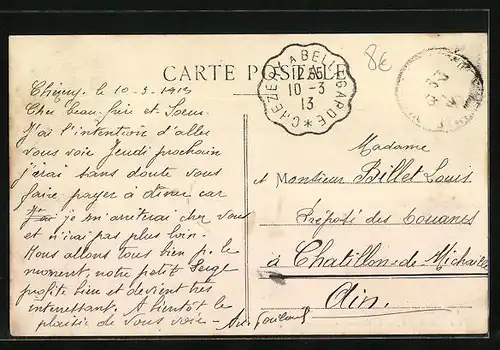 CARTE POSTALE
8€
CHÉZERY A BELLEGARDE
12 35
10-3
13
le 10-3-1913
Cher beau frère et Soeur
J'ai l'intention d'aller
vous voir Jeudi prochain
j'irai sans doute vous
faire payer à diner car
je m'arrêterai chez vous
et n'irai pas plus loin.
Nous allons tous bien p. le
moment, notre petit Serge
profite bien et devient très
interressant. A bientôt le
plaisir de vous voir -
Madame
et Monsieur Billet Louis
Préposé des Douanes
à Chatillon-de-Michaille
Ain.